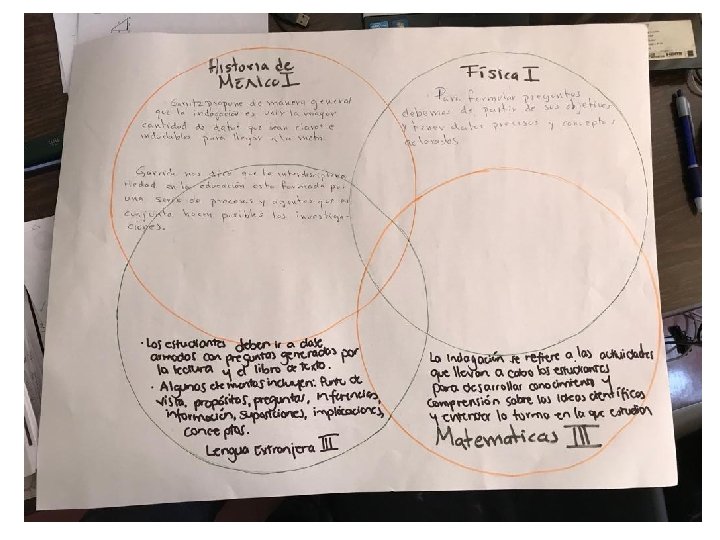 Historia de
MÉXICO I
propone de manera general
que la indagación es unir la mayor
cantidad de datos que sean claros e
indudables para llegar a la meta.
Garrido nos dice que la interdiscipina
riedad en la educación esta formada por
una serie de procesos y agentes que en
conjunto hacen posibles las investiga-
ciones.
Física I
· Para formular preguntas
debemos de partir de sus objetivos
y tener datos procesos y conceptos
aclarados
· Los estudiantes deben ir a clase
armados con preguntas generadas por
la lectura y el libro de texto.
· Algunos elementos incluyen: Punto de
vista, propósitos, preguntas, inferencias,
información, suposiciones, implicaciones,
conceptos.
Lengua Extranjera III
La Indagación se refiere a las actividades
que llevan a cabo los estudiantes
para desarrollar conocimiento y
comprensión sobre las ideas científicas
y entender la forma en la que estudian
Matematicas III